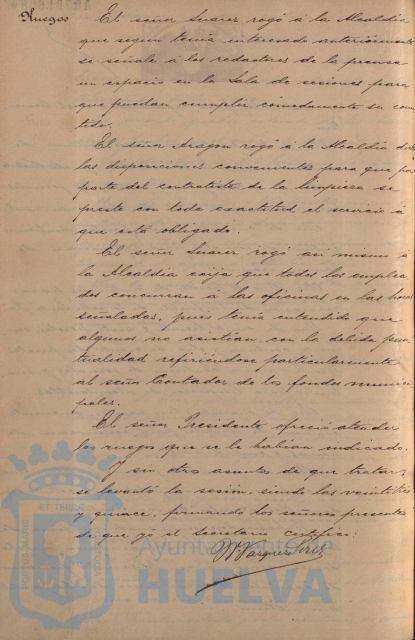 Ruegos
El señor Suarez rogó á la Alcaldia
que segun tenia interesado anteriormente
se señale á los redactores de la prensa
un espacio en la Sala de sesiones para
que puedan cumplir comodamente su co-
tido.
El señor Aragon rogó á la Alcaldia
las disposiciones convenientes para que por
parte del contratista de la limpieza se
preste con toda exactitud el servicio á
que está obligado.
El señor Suarez rogó asi mismo á
la Alcaldia exija que todos los emplea
dos concurran á las oficinas en las horas
señaladas, pues tenia entendido que
algunos no asistian con la debida pun
tualidad refiriéndose particularmente
al señor Contador de los fondos munici
pales.
El señor Presidente ofreció atender
los ruegos que se le habian indicado.
Y sin otros asuntos de que tratar,
se levantó la sesion, siendo las veintitres
y quince, firmando los señores presentes
de que yo el Secretario certifico:
Vazquez
Ayuntamiento de
HUELVA